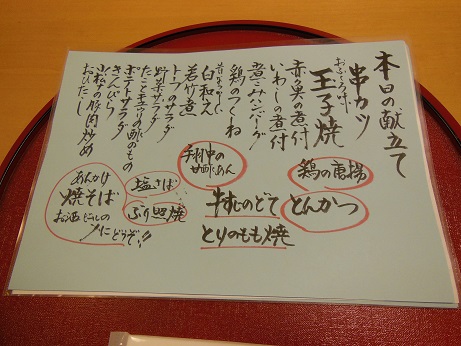 本日の献立て
串カツ
おふくろの味
玉子焼
赤魚の煮付
いわしの煮付
煮こみハンバーグ
鶏のつくね
昔なつかしい
白和え
若竹煮
トーフのサラダ
野菜サラダ
たこと玉ねぎの酢のもの
ポテトサラダ
きんぴら
小松菜の豚肉炒め
おひたし
鶏の唐揚
とんかつ
手羽中の
甘酢あん
牛すじのどて
とりのもも焼
塩さば
ぶり照焼
あんかけ
焼そば
お酒
〆にどうぞ!!